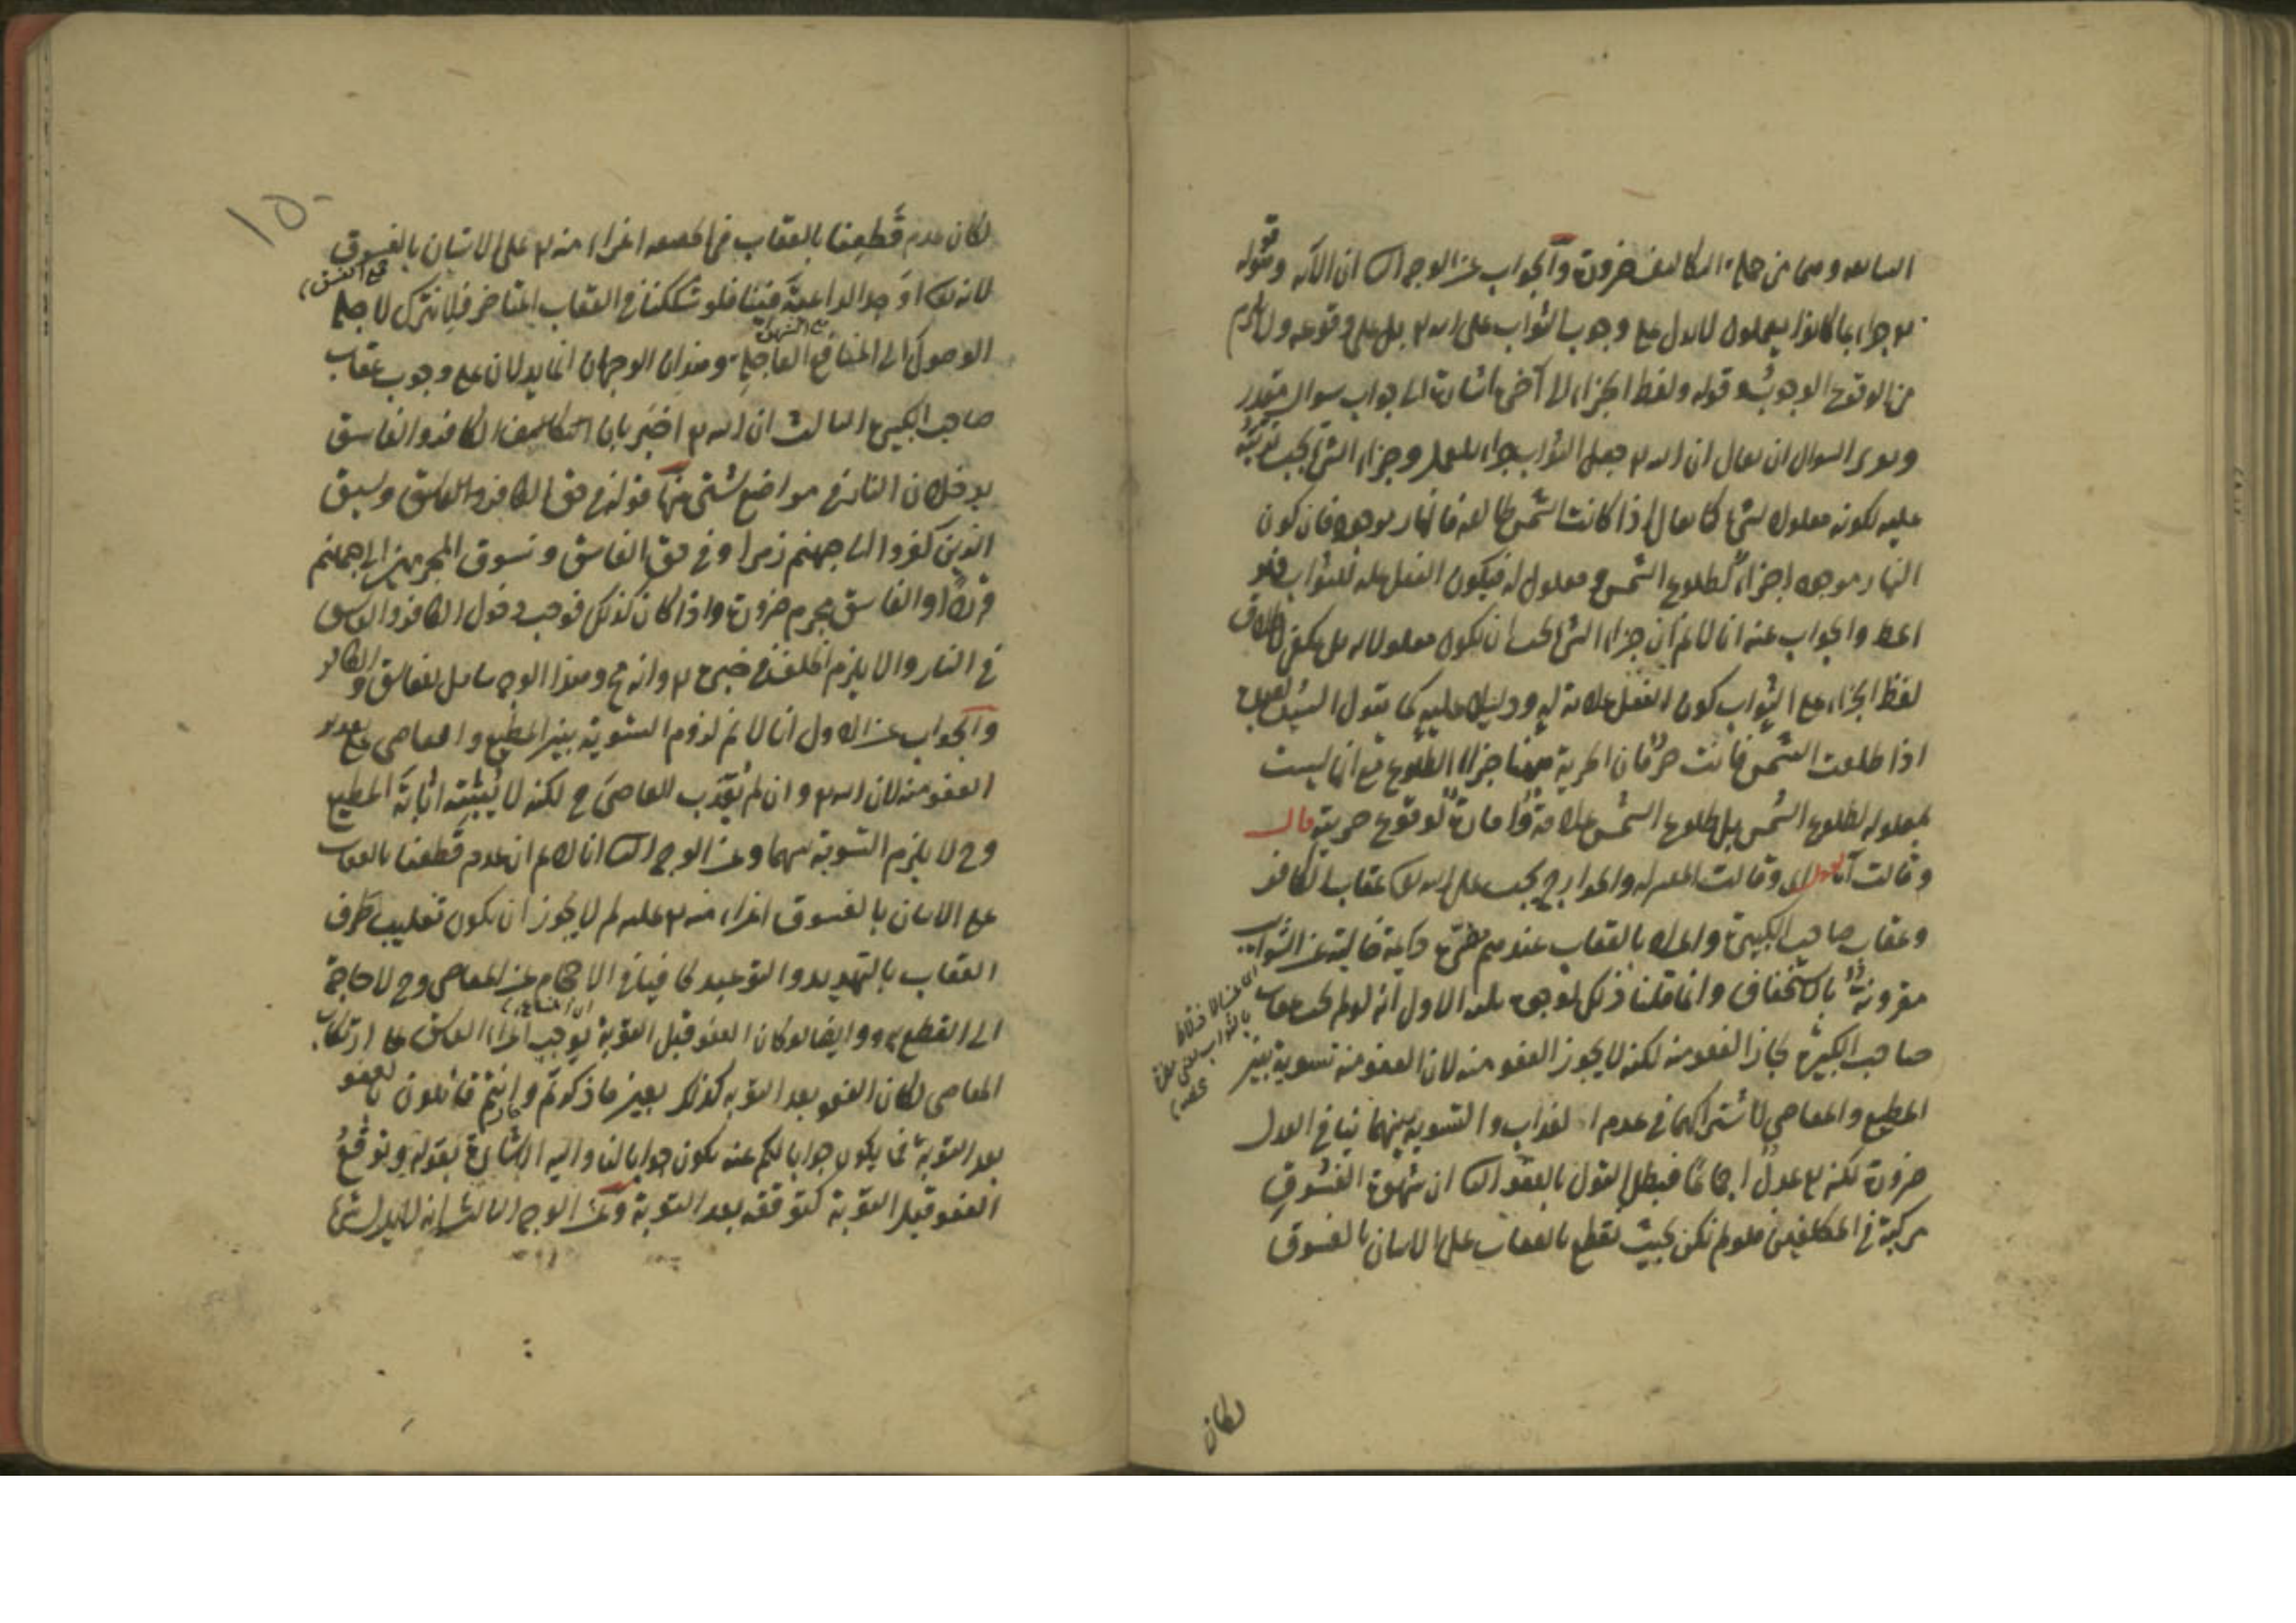 السابقة وهما من جملة التكاليف ضرورة والجواب عن الوجه ان الآية وقوله
جزاء بما كانوا يعملون لا يدل على وجوب الثواب على الله بل على وقوعه ولا يلزم
من الوقوع الوجوب وقوله ولفظ الجزاء الى آخره اشارة الى جواب سوال مقدر
السوال ان يقال ان الله جعل الثواب جزاء للعمل وجزاء الشئ يجب
عليه لكونه معلولا لشئ كما يقال اذا كانت الشمس طالعة فالنهار موجود فان كون
النهار موجودا جزاء لطلوع الشمس ومعلول له فيكون الفعل علة للثواب
والجواب عنه انا لا نم ان جزاء الشئ يجب ان يكون معلولا له بل يكفى
لفظ الجزاء على الثواب كون الفعل علامة له ودليلا عليه كما يقول السيد
اذا طلعت الشمس فانت حر فان الحرية ههنا جزاء الطلوع مع انها ليست
بمعلولة لطلوع الشمس بل طلوع الشمس علامة وامارة لوقوع حريته قال
وقالت المعتزلة والخوارج يجب على الله عقاب الكافر
وعقاب صاحب الكبيرة والمراد بالعقاب عندهم مضرة دائمة خالية عن الثواب
مقرونة بالاستخفاف وانما قلنا ذلك لوجوه ثلثة الاول انه لو لم يجب عقاب
صاحب الكبيرة لجاز العفو منه لكنه لا يجوز العفو منه لان العفو منه تسوية بين
المطيع والعاصى لاشتراكهما فى عدم العذاب والتسوية بينهما ينافى العدل
ضرورة لكنه عدل اجماعا فبطل القول بالعفو ان شهوة الفسوق
مركبة فى المكلفين فلو لم نكن بحيث نقطع بالعقاب على الاتيان بالفسوق
لكان
١٥٠
لكان عدم قطعنا بالعقاب اغراء منه على الاتيان بالفسوق
لانه اوجد الداعية فينا فلو شككنا فى العقاب المتاخر فلا نترك لاجله
الوصول الى المنافع العاجلة وهذان الوجهان انما يدلان على وجوب عقاب
صاحب الكبيرة الثالث ان الله اخبر بان الكافر والفاسق
يدخلان النار فى مواضع شتى منها قوله فى حق الكافر وسيق
الذين كفروا الى جهنم زمرا وفى حق الفاسق ونسوق المجرمين الى جهنم
وردا والفاسق مجرم ضرورة واذا كان كذلك فوجب دخول الكافر والفاسق
فى النار والا يلزم الخلف فى خبره وانه مح وهذا الوجه شامل للفاسق والكافر
والجواب عن الاول انا لا نم لزوم التسوية بين المطيع والعاصى على تقدير
العفو منه لان الله وان لم يعذب العاصى لكنه لا يثيبه اثابة المطيع
وح لا يلزم التسوية بينهما وعن الوجه انا لا نم ان عدم قطعنا بالعقاب
على الاتيان بالفسوق اغراء منه عليه لم لا يجوز ان يكون تغليب طرف
العقاب بالتهديد والتوعيد كافيا فى الاحجام عن المعاصى وح لا حاجة
الى القطع وايضا لو كان العفو قبل التوبة يوجب اغراء الفاسق على ارتكاب
المعاصى لكان العفو بعد التوبة كذلك بعين ما ذكرتم وانتم قائلون بالعفو
بعد التوبة فما يكون جوابا لكم عنه يكون جوابا لنا واليه الاشارة بقوله وتوقع
العفو قبل التوبة كتوقعه بعد التوبة وعن الوجه الثالث انه لا يدل شئ